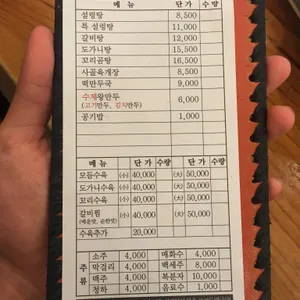 메 뉴 단 가 수 량
설렁탕 8,500
특 설렁탕 11,000
갈비탕 12,000
도가니탕 15,500
꼬리곰탕 16,500
사골육개장 8,500
떡만두국 9,000
수제왕만두 6,000
(고기만두, 김치만두)
공기밥 1,000
메 뉴 단 가 수량 단 가 수량
모듬수육 (小) 40,000 (大) 50,000
도가니수육 (小) 40,000 (大) 50,000
꼬리수육 (小) 40,000 (大) 50,000
갈비찜 (小) 40,000 (大) 50,000
(매운맛, 순한맛)
수육추가 20,000
주 류
소주 4,000 매화수 4,000
막걸리 4,000 백세주 8,000
맥주 4,000 복분자 10,000
청하 4,000 음료수 1,000